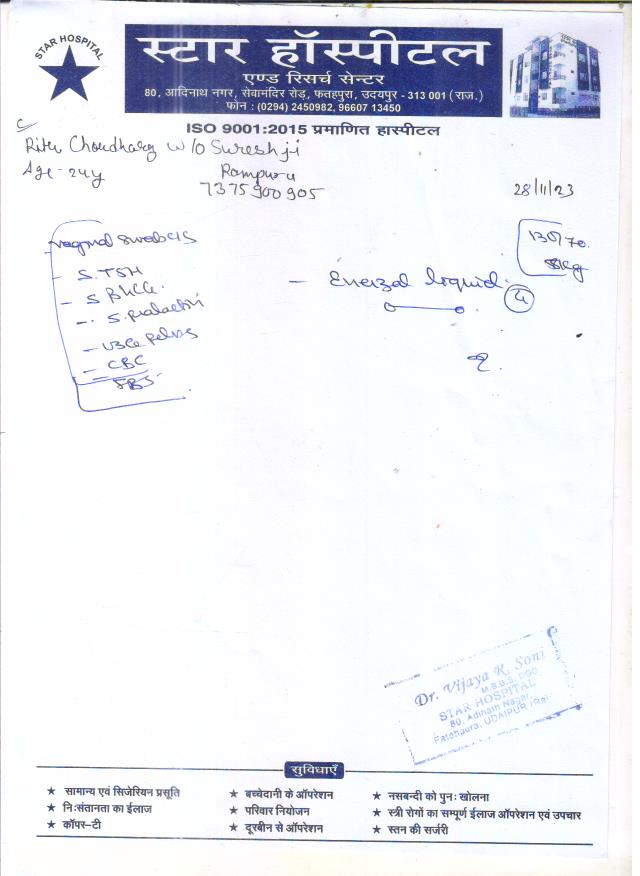 STAR HOSPITAL
स्टार हॉस्पीटल
एण्ड रिसर्च सेन्टर
80, आदिनाथ नगर, सेवामंदिर रोड़, फतहपुरा, उदयपुर - 313 001 (राज.)
फोन : (0294) 2450982, 96607 13450
ISO 9001:2015 प्रमाणित हास्पीटल
Ritu Choudhary w/o Sureshji
Age - 24y
Rampura
7375900905
28/11/23
vaginal swab c/s
- S.TSH
- S BHCG.
- S. prolactin
- USG Pelvis
- CBC
FBS
130/70.
- Enerzal liquid
Dr. Vijaya R. Soni
M.B.B.S, DGO
STAR HOSPITAL
80, Adinath Nagar,
Fatehpura, UDAIPUR (Raj
सुविधाएँ
★ सामान्य एवं सिजेरियन प्रसूति
★ बच्चेदानी के ऑपरेशन
★ नसबन्दी को पुनः खोलना
★ निःसंतानता का ईलाज
★ परिवार नियोजन
★ स्त्री रोगों का सम्पूर्ण ईलाज ऑपरेशन एवं उपचार
★ कॉपर-टी
★ दूरबीन से ऑपरेशन
★ स्तन की सर्जरी